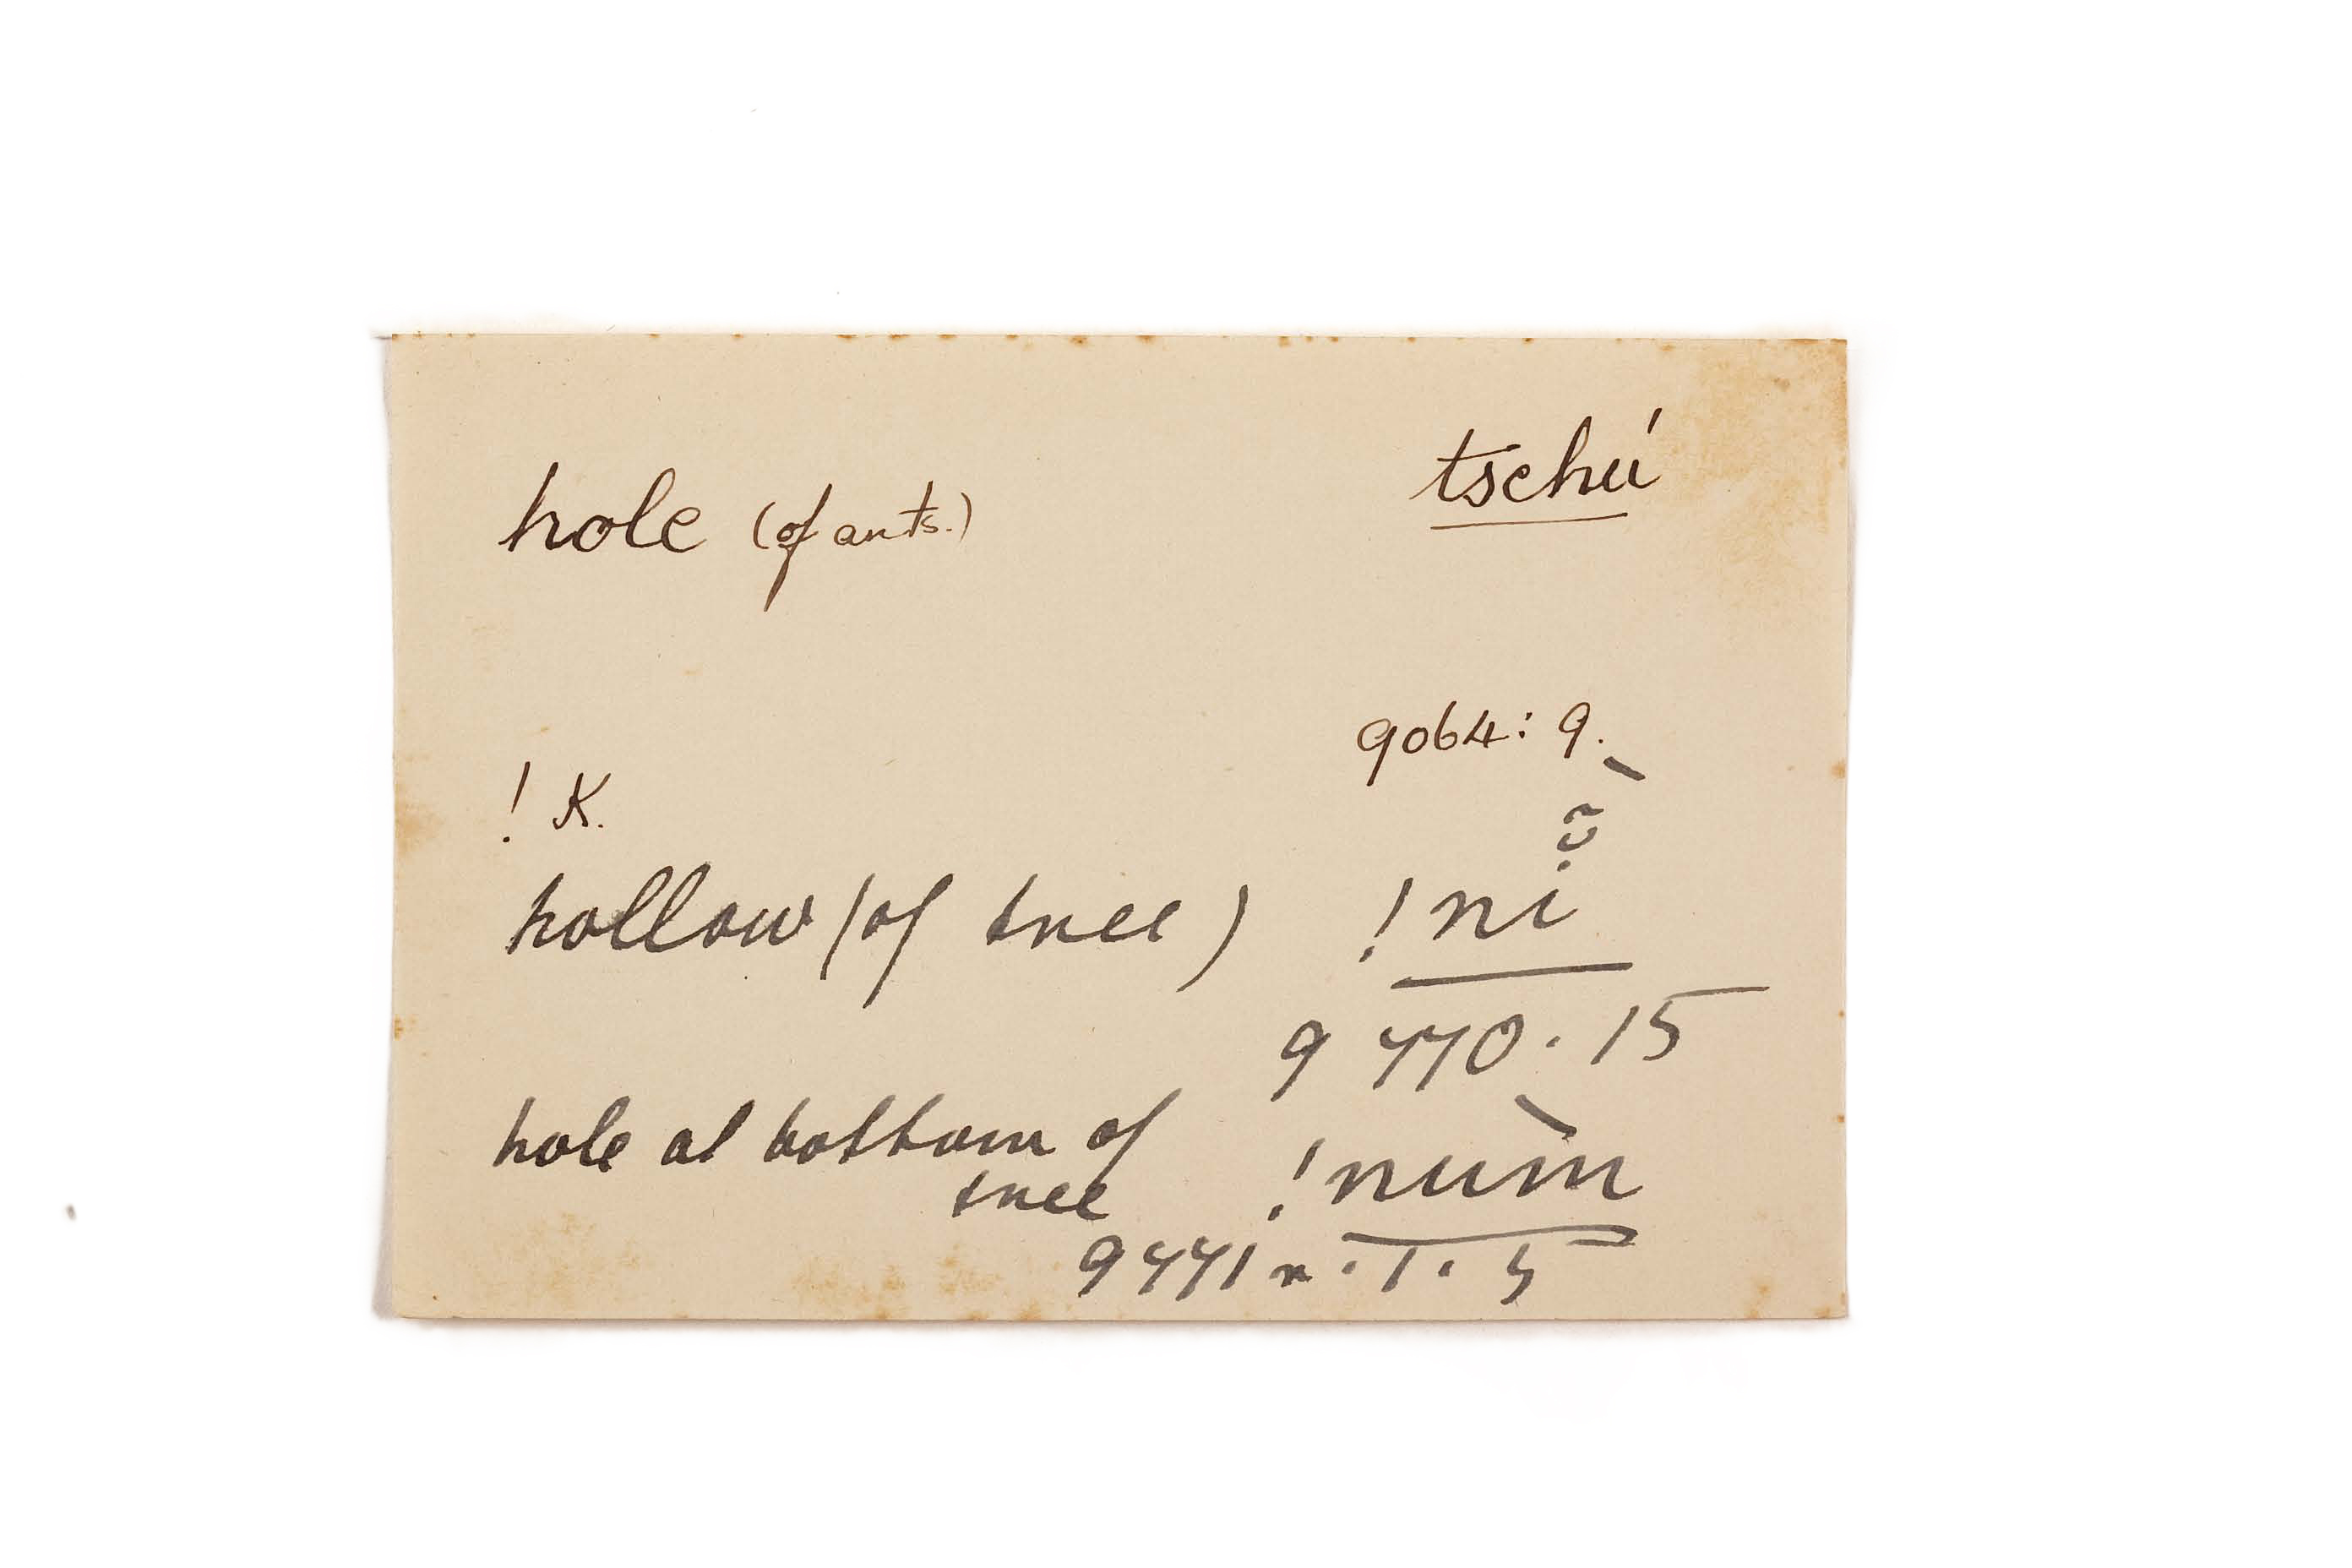 hole (of ants.) tschú
9064: 9.
! K.
hollow (of tree) !nĭ̃̀
9770. 15
hole at bottom of
tree !nùm
9771 n. 1. 5